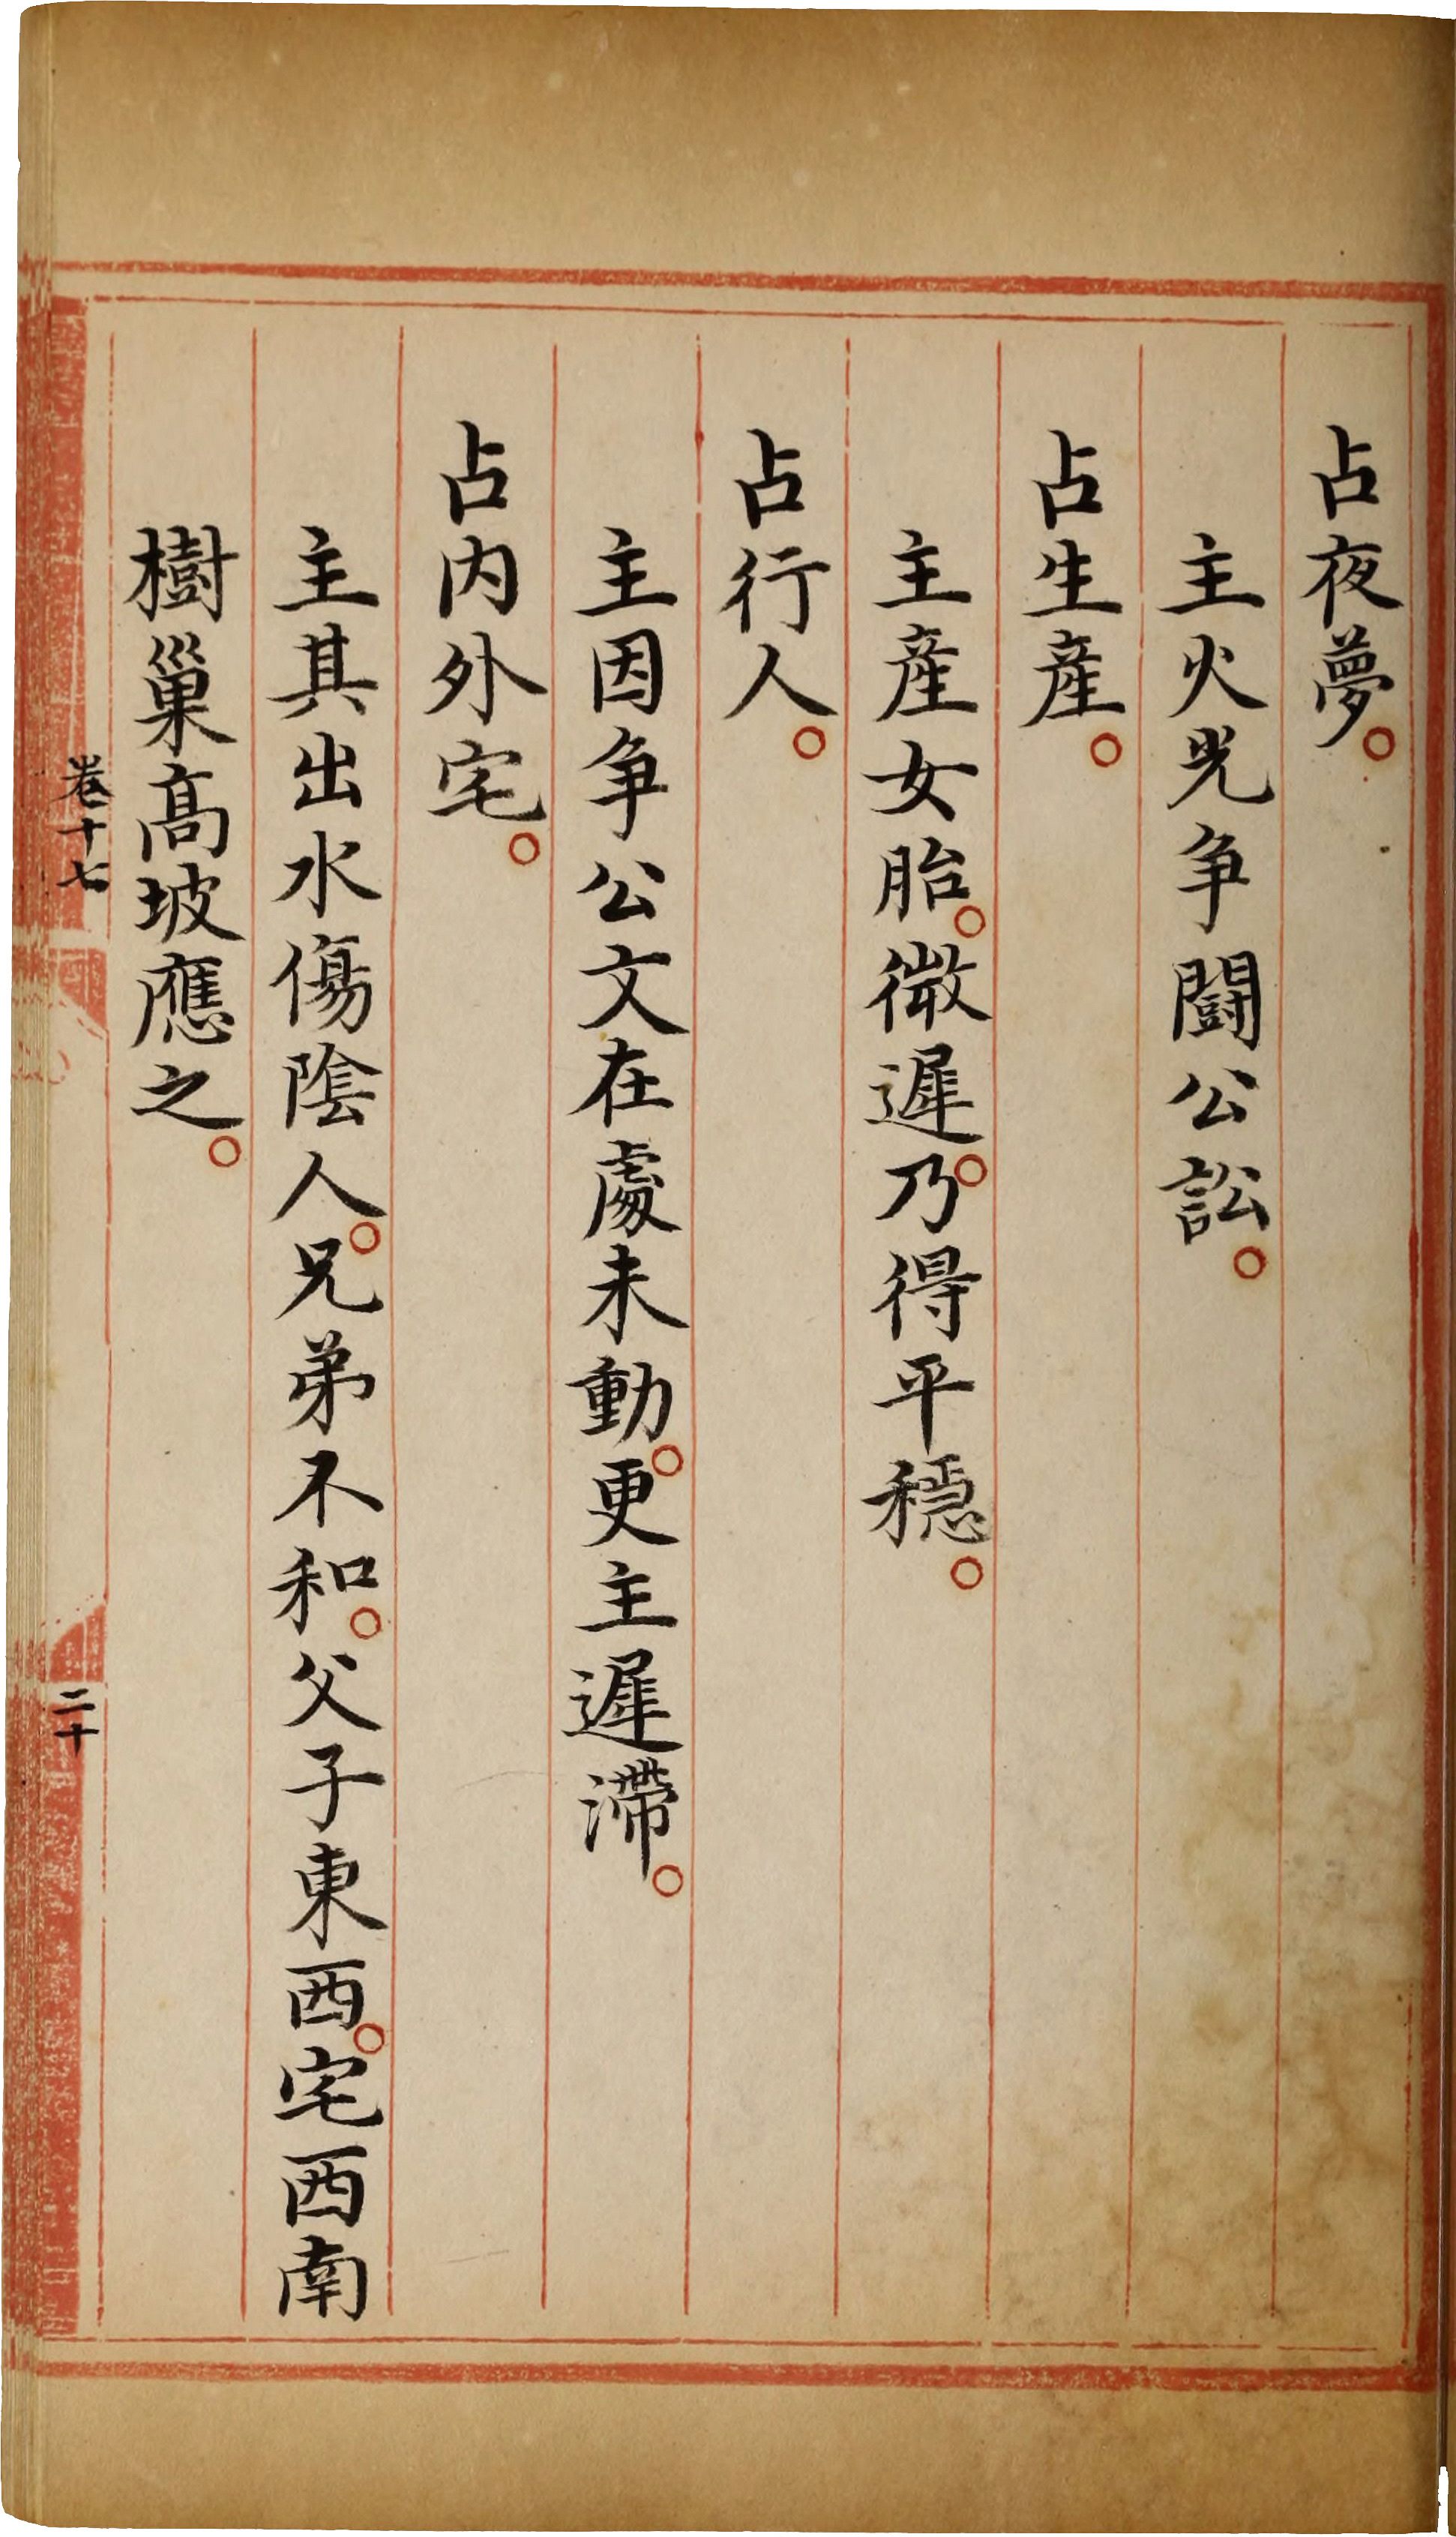 占夜夢。
主火光争鬪公訟。
占生產。
主產女胎。微遲。乃得平穩。
占行人。
主因争公文在處未動。更主遲滯。
占内外宅。
主其出水傷陰人。兄弟不和。父子東西。宅西南
樹巢高坡應之。
卷十七
二十